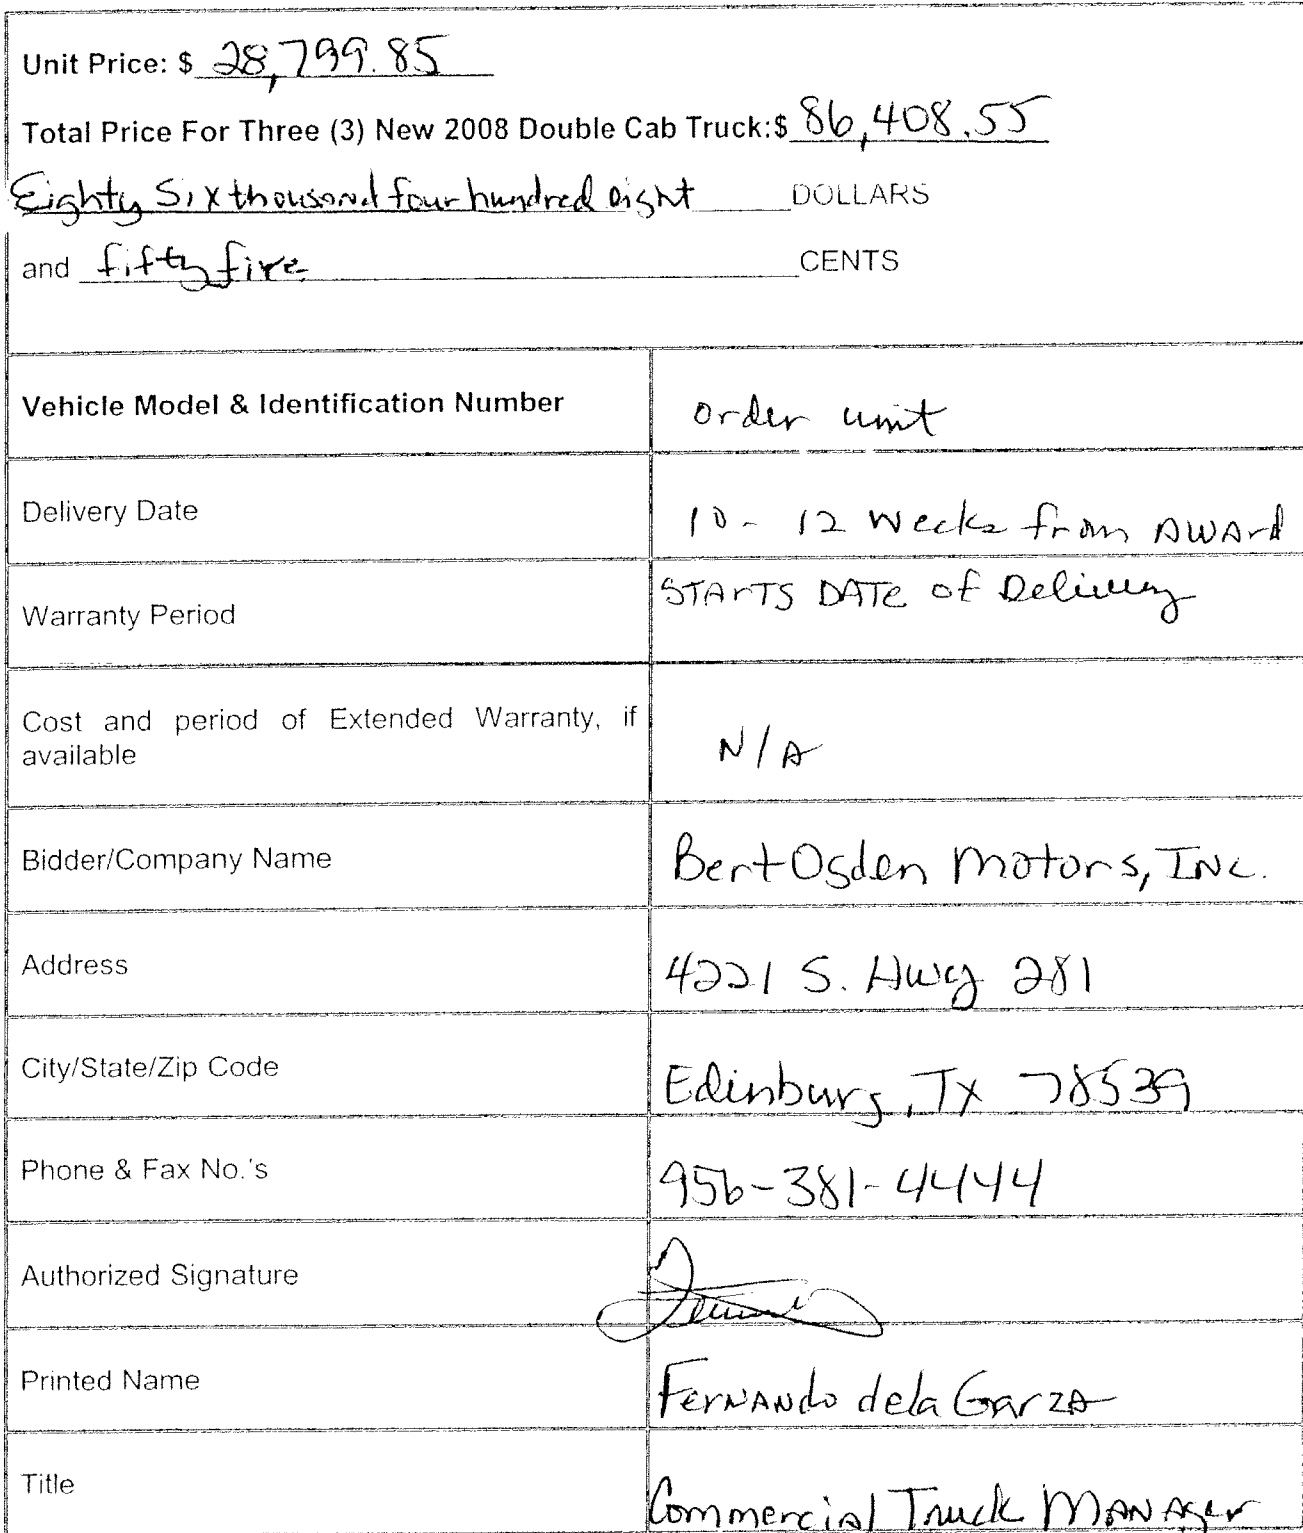 Unit Price: $ 28,799.85
Total Price For Three (3) New 2008 Double Cab Truck:$ 86,408.55
Eighty Six thousand four hundred eight DOLLARS
and fifty five CENTS
Vehicle Model & Identification Number order unit
Delivery Date 10 - 12 weeks from AWArd
Warranty Period STArTS DATe of Delivery
Cost and period of Extended Warranty, if
available N/A
Bidder/Company Name Bert Ogden Motors, INC.
Address 4221 S. Hwy 281
City/State/Zip Code Edinburg, TX 78539
Phone & Fax No.'s 956-381-4444
Authorized Signature
Printed Name FerNANdo dela GArzA
Title Commercial Truck MANAger